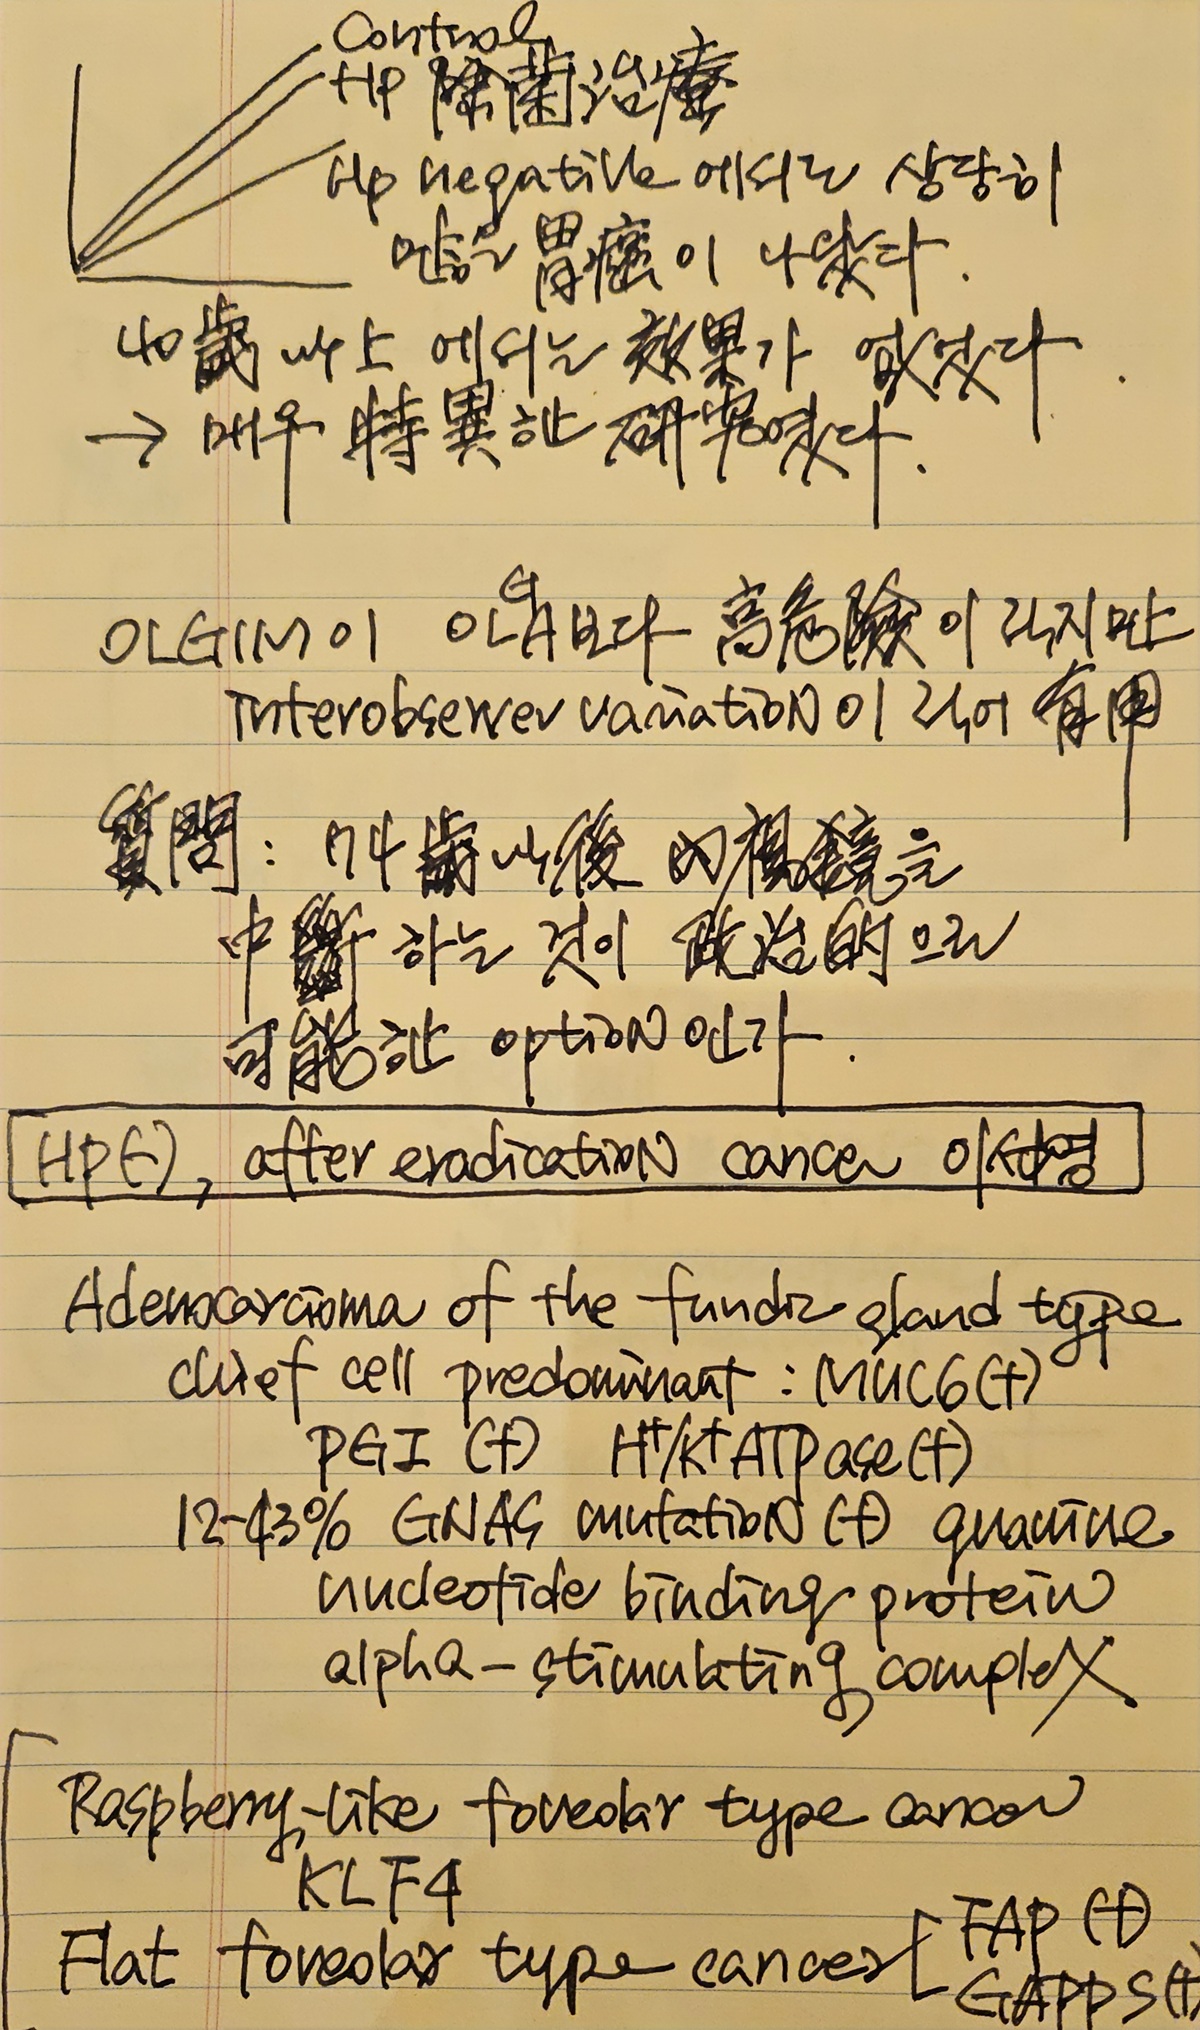 Control
HP 除菌治療
Hp negative 에서는 상당히
많은 胃癌이 나왔다.
40歲 以上 에서는 效果가 없었다.
→ 매우 特異한 硏究였다.
OLGIM이 OLGA보다 高危險이 적지만
interobserver variation이 적어 有用
質問: 74歲以後 內視鏡을
中斷 하는 것이 政治的으로
可能한 option인가.
HP(-), after eradication cancer 이상명
Adenocarcioma of the fundic gland type
chief cell predominant : MUC6(+)
PGI (+) H⁺/K⁺ATPase(+)
12-43% GNAS mutation (+) guanine
nucleotide binding protein
alpha-stimulating complex
Raspberry-like foveolar type cancer
KLF4
Flat foveolar type cancer [ FAP (+)
GAPPS(+)